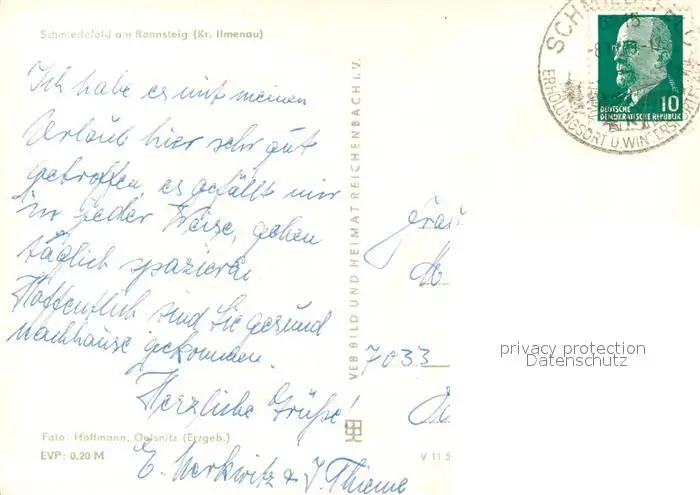 Schmiedefeld am Rennsteig (Kr. Ilmenau)
Ich habe es mit meinen
Urlaub hier sehr gut
getroffen, es gefällt mir
in jeder Weise, gehen
täglich spazieren.
Hoffentlich sind Sie gesund
nachhause gekommen.
Herzliche Grüße!
E. Merkwitz & J. Thieme
Foto: Hoffmann, Oelsnitz (Erzgeb.)
EVP: 0,20 M
VEB BILD UND HEIMAT REICHENBACH I. V.
V 11 5
Frau
7033
privacy protection
Datenschutz
ERHOLUNGSORT U. WINTERSPORT
DEUTSCHE
DEMOKRATISCHE REPUBLIK
10